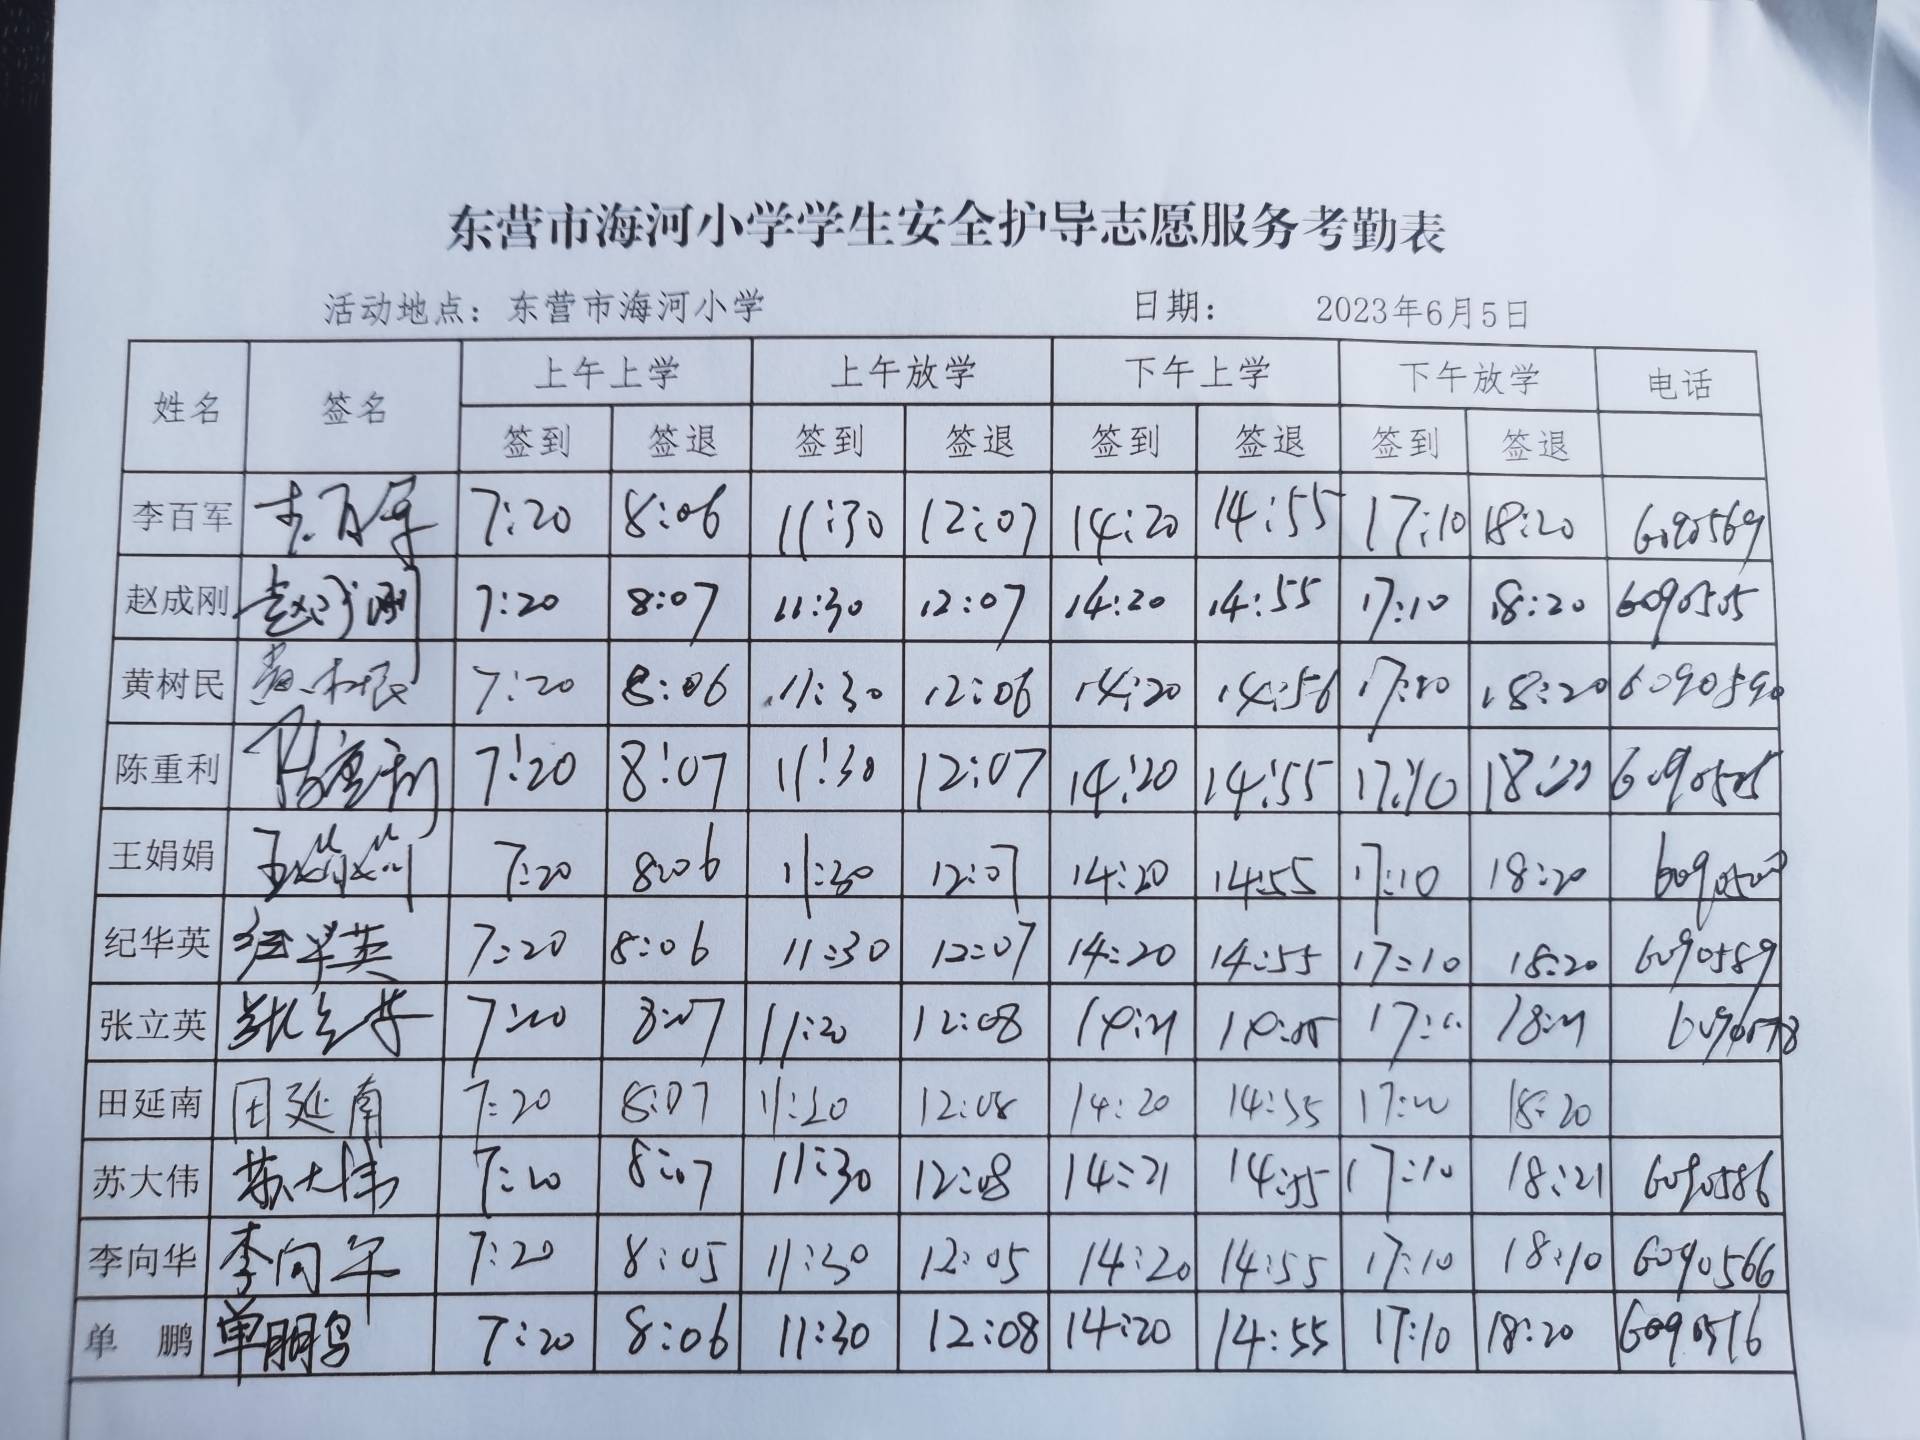 东营市海河小学学生安全护导志愿服务考勤表
活动地点：东营市海河小学 日期： 2023年6月5日
姓名 签名 上午上学 上午放学 下午上学 下午放学 电话
签到 签退 签到 签退 签到 签退 签到 签退
李百军 李百军 7:20 8:06 11:30 12:07 14:20 14:55 17:10 18:20 6090569
赵成刚 赵成刚 7:20 8:07 11:30 12:07 14:20 14:55 17:10 18:20 6090505
黄树民 黄树民 7:20 8:06 11:30 12:06 14:20 14:56 17:10 18:20 6090590
陈重利 陈重利 7:20 8:07 11:30 12:07 14:20 14:55 17:10 18:20
王娟娟 王娟娟 7:20 8:06 11:30 12:07 14:20 14:55 17:10 18:20
纪华英 纪华英 7:20 8:06 11:30 12:07 14:20 14:55 17:10 18:20 6090589
张立英 张立英 7:20 8:07 11:20 12:08 14:21 18:21 6090578
田延南 田延南 7:20 8:07 11:20 12:08 14:20 14:55 17:10 18:20
苏大伟 苏大伟 7:20 8:07 11:30 12:08 14:21 14:55 17:10 18:21 6090586
李向华 李向华 7:20 8:05 11:30 12:05 14:20 14:55 17:10 18:10 6090566
单 鹏 单鹏 7:20 8:06 11:30 12:08 14:20 14:55 17:10 18:20 6090516